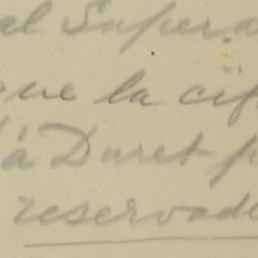 al Supera
que la cif
a Duret p
reservado